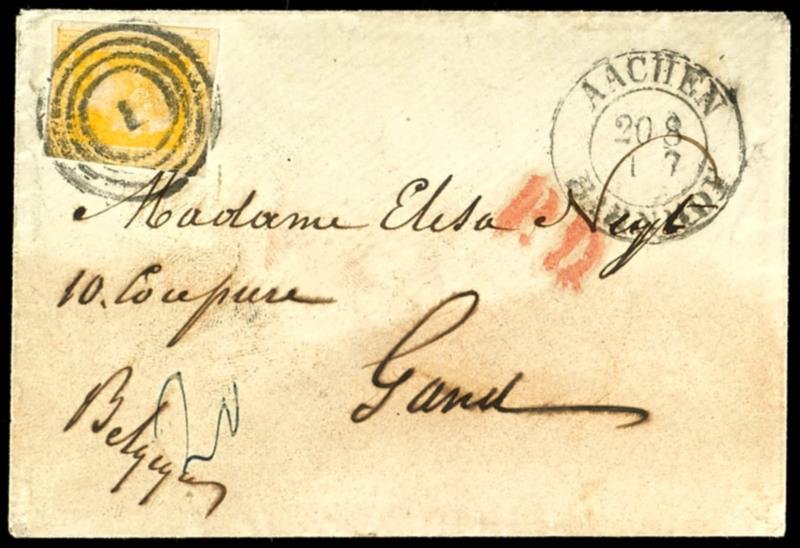 1
AACHEN
20 8
1 7
BAHNHOF
P.D.
Madame Elisa Nuyt
10. Coupure
Gand
Belgique